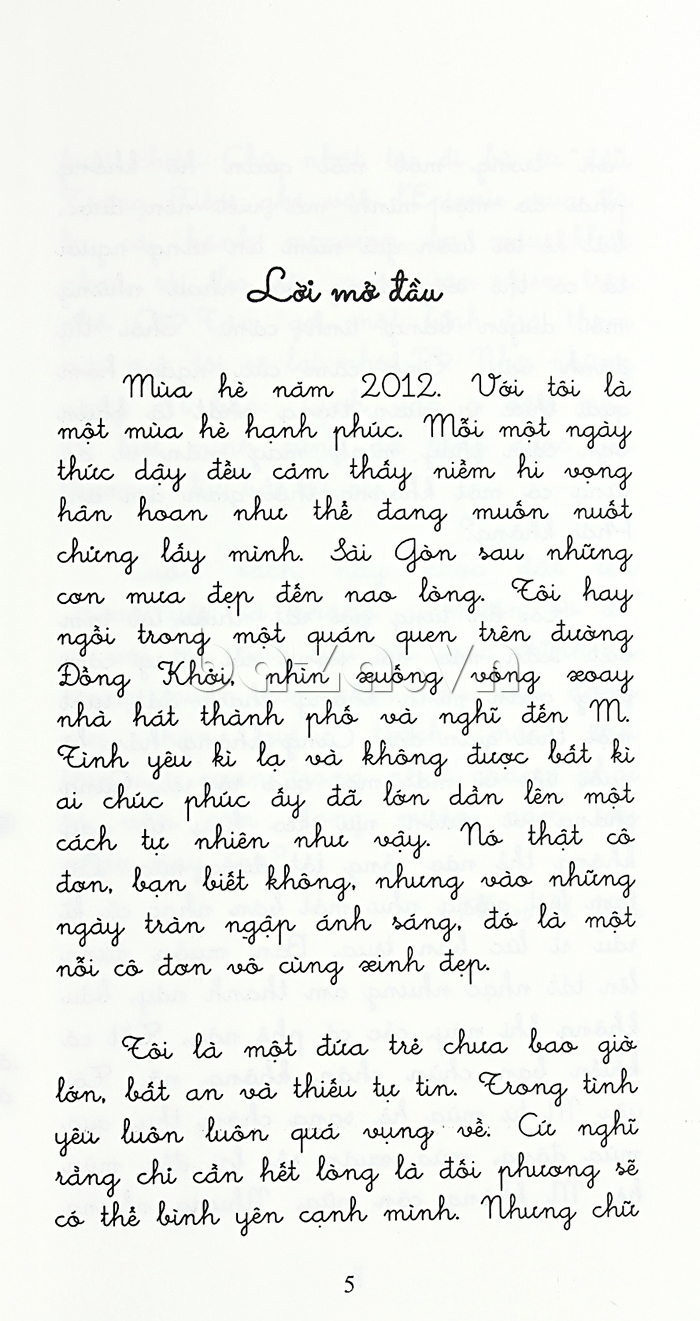 Lời mở đầu
Mùa hè năm 2012. Với tôi là
một mùa hè hạnh phúc. Mỗi một ngày
thức dậy đều cảm thấy niềm hi vọng
hân hoan như thể đang muốn nuốt
chửng lấy mình. Sài Gòn sau những
cơn mưa đẹp đến nao lòng. Tôi hay
ngồi trong một quán quen trên đường
Đồng Khởi, nhìn xuống vòng xoay
baza.vn
nhà hát thành phố và nghĩ đến M.
Tình yêu kì lạ và không được bất kì
ai chúc phúc ấy đã lớn dần lên một
cách tự nhiên như vậy. Nó thật cô
đơn, bạn biết không, nhưng vào những
ngày tràn ngập ánh sáng, đó là một
nỗi cô đơn vô cùng xinh đẹp.
Tôi là một đứa trẻ chưa bao giờ
lớn, bất an và thiếu tự tin. Trong tình
yêu luôn luôn quá vụng về. Cứ nghĩ
rằng chỉ cần hết lòng là đối phương sẽ
có thể bình yên cạnh mình. Nhưng chữ
5